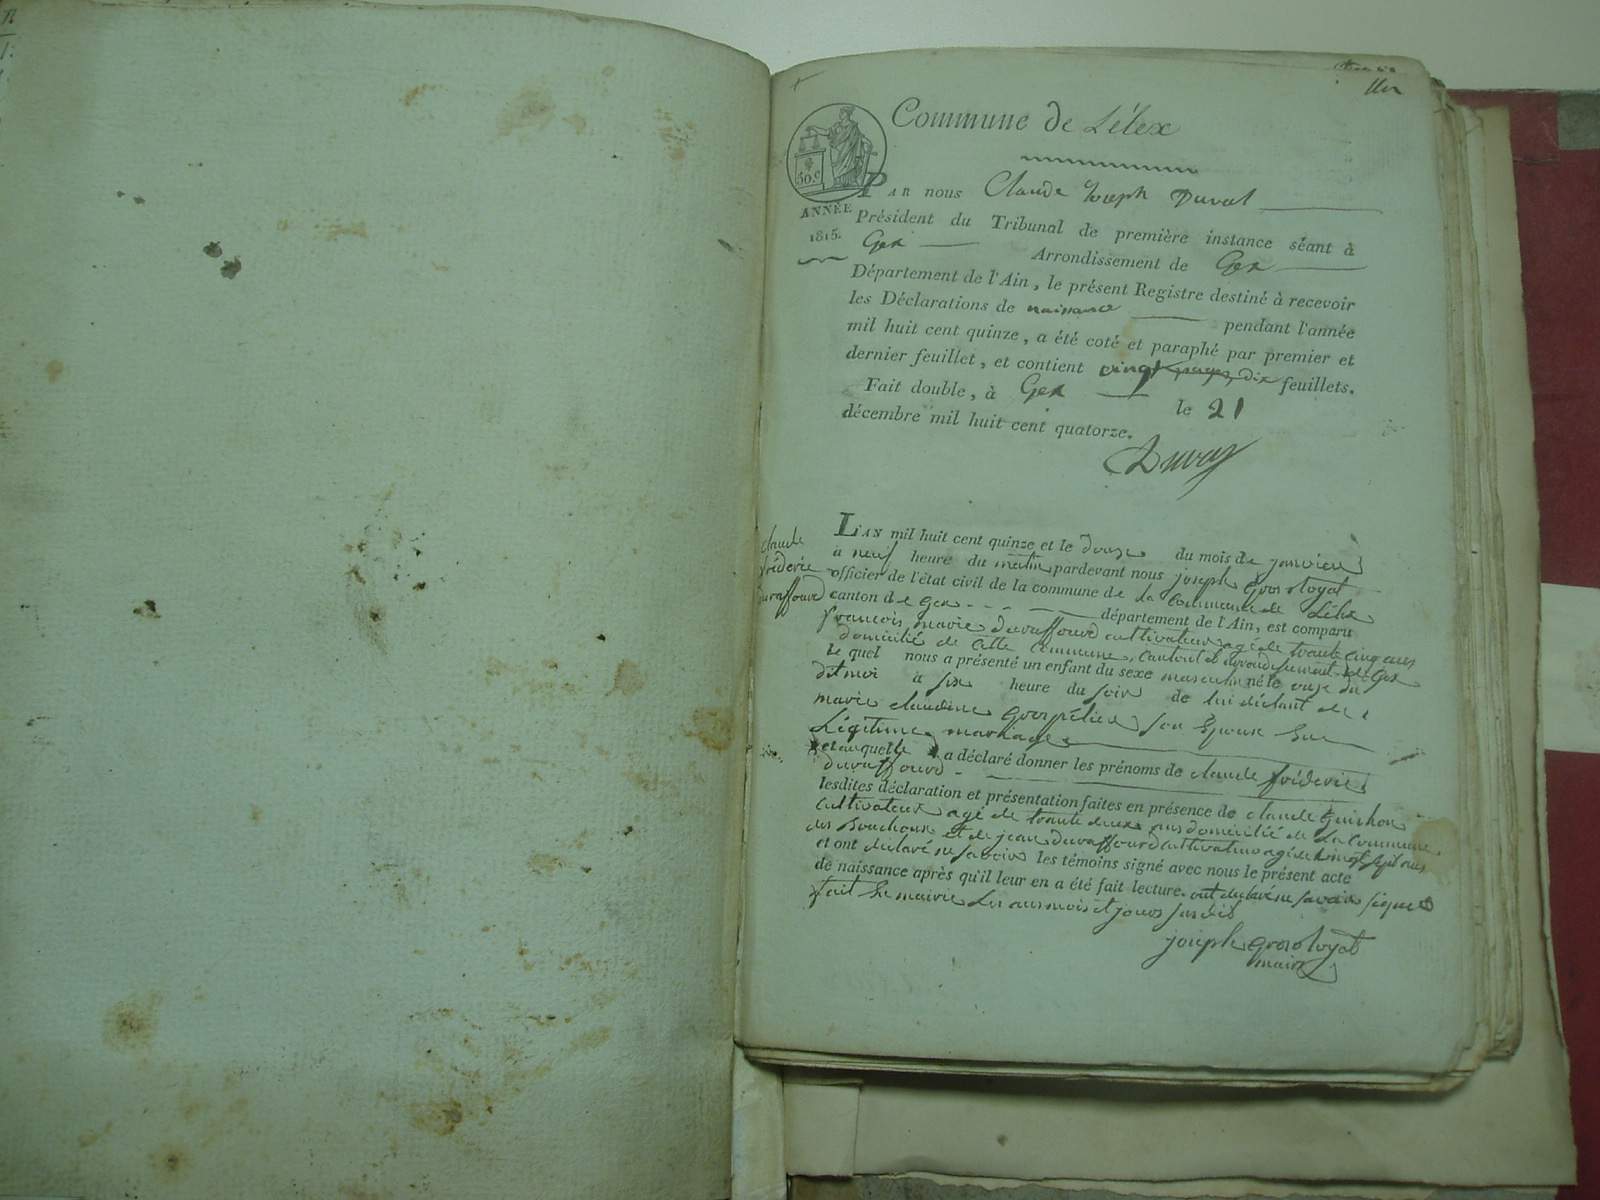 Commune de Lélex
50.c
ANNÉE
1815.
PAR nous Claude Joseph Duval
Président du Tribunal de première instance séant à
Gex Arrondissement de Gex
Département de l'Ain, le présent Registre destiné à recevoir
les Déclarations de naissance pendant l'année
mil huit cent quinze, a été coté et paraphé par premier et
dernier feuillet, et contient vingt pages, dix feuillets.
Fait double, à Gex le 21
décembre mil huit cent quatorze.
Duval
claude
fréderic
duraffourd
L'AN mil huit cent quinze et le douze du mois de janvier
à neuf heure du matin pardevant nous joseph Grosgoyat
officier de l'état civil de la commune de la commune de Lélex
canton de Gex département de l'Ain, est comparu
françois marie duraffourd cultivateur agé de trante cinq ans
domicilié de cette commune, canton et arrondissement de Gex
le quel nous a présenté un enfant du sexe masculin né le onze du
dit moi à six heure du soir de lui déclant de
marie claudine Grospélier son Epouse En
Légitime mariage
et auquelle a déclaré donner les prénoms de claude fréderic
duraffourd
lesdites déclaration et présentation faites en présence de claude Guichon
cultivateur agé de trante deux ans domicilié de La Commune
des Bouchoux et de jean duraffourd cultivateur agé de vingt sept ans
et ont declaré ne savoir les témoins signé avec nous le présent acte
de naissance après qu'il leur en a été fait lecture. ont declaré ne savoir signer
fait En mairie Les ans mois et jours susdis
joseph Grosgoyat
maire